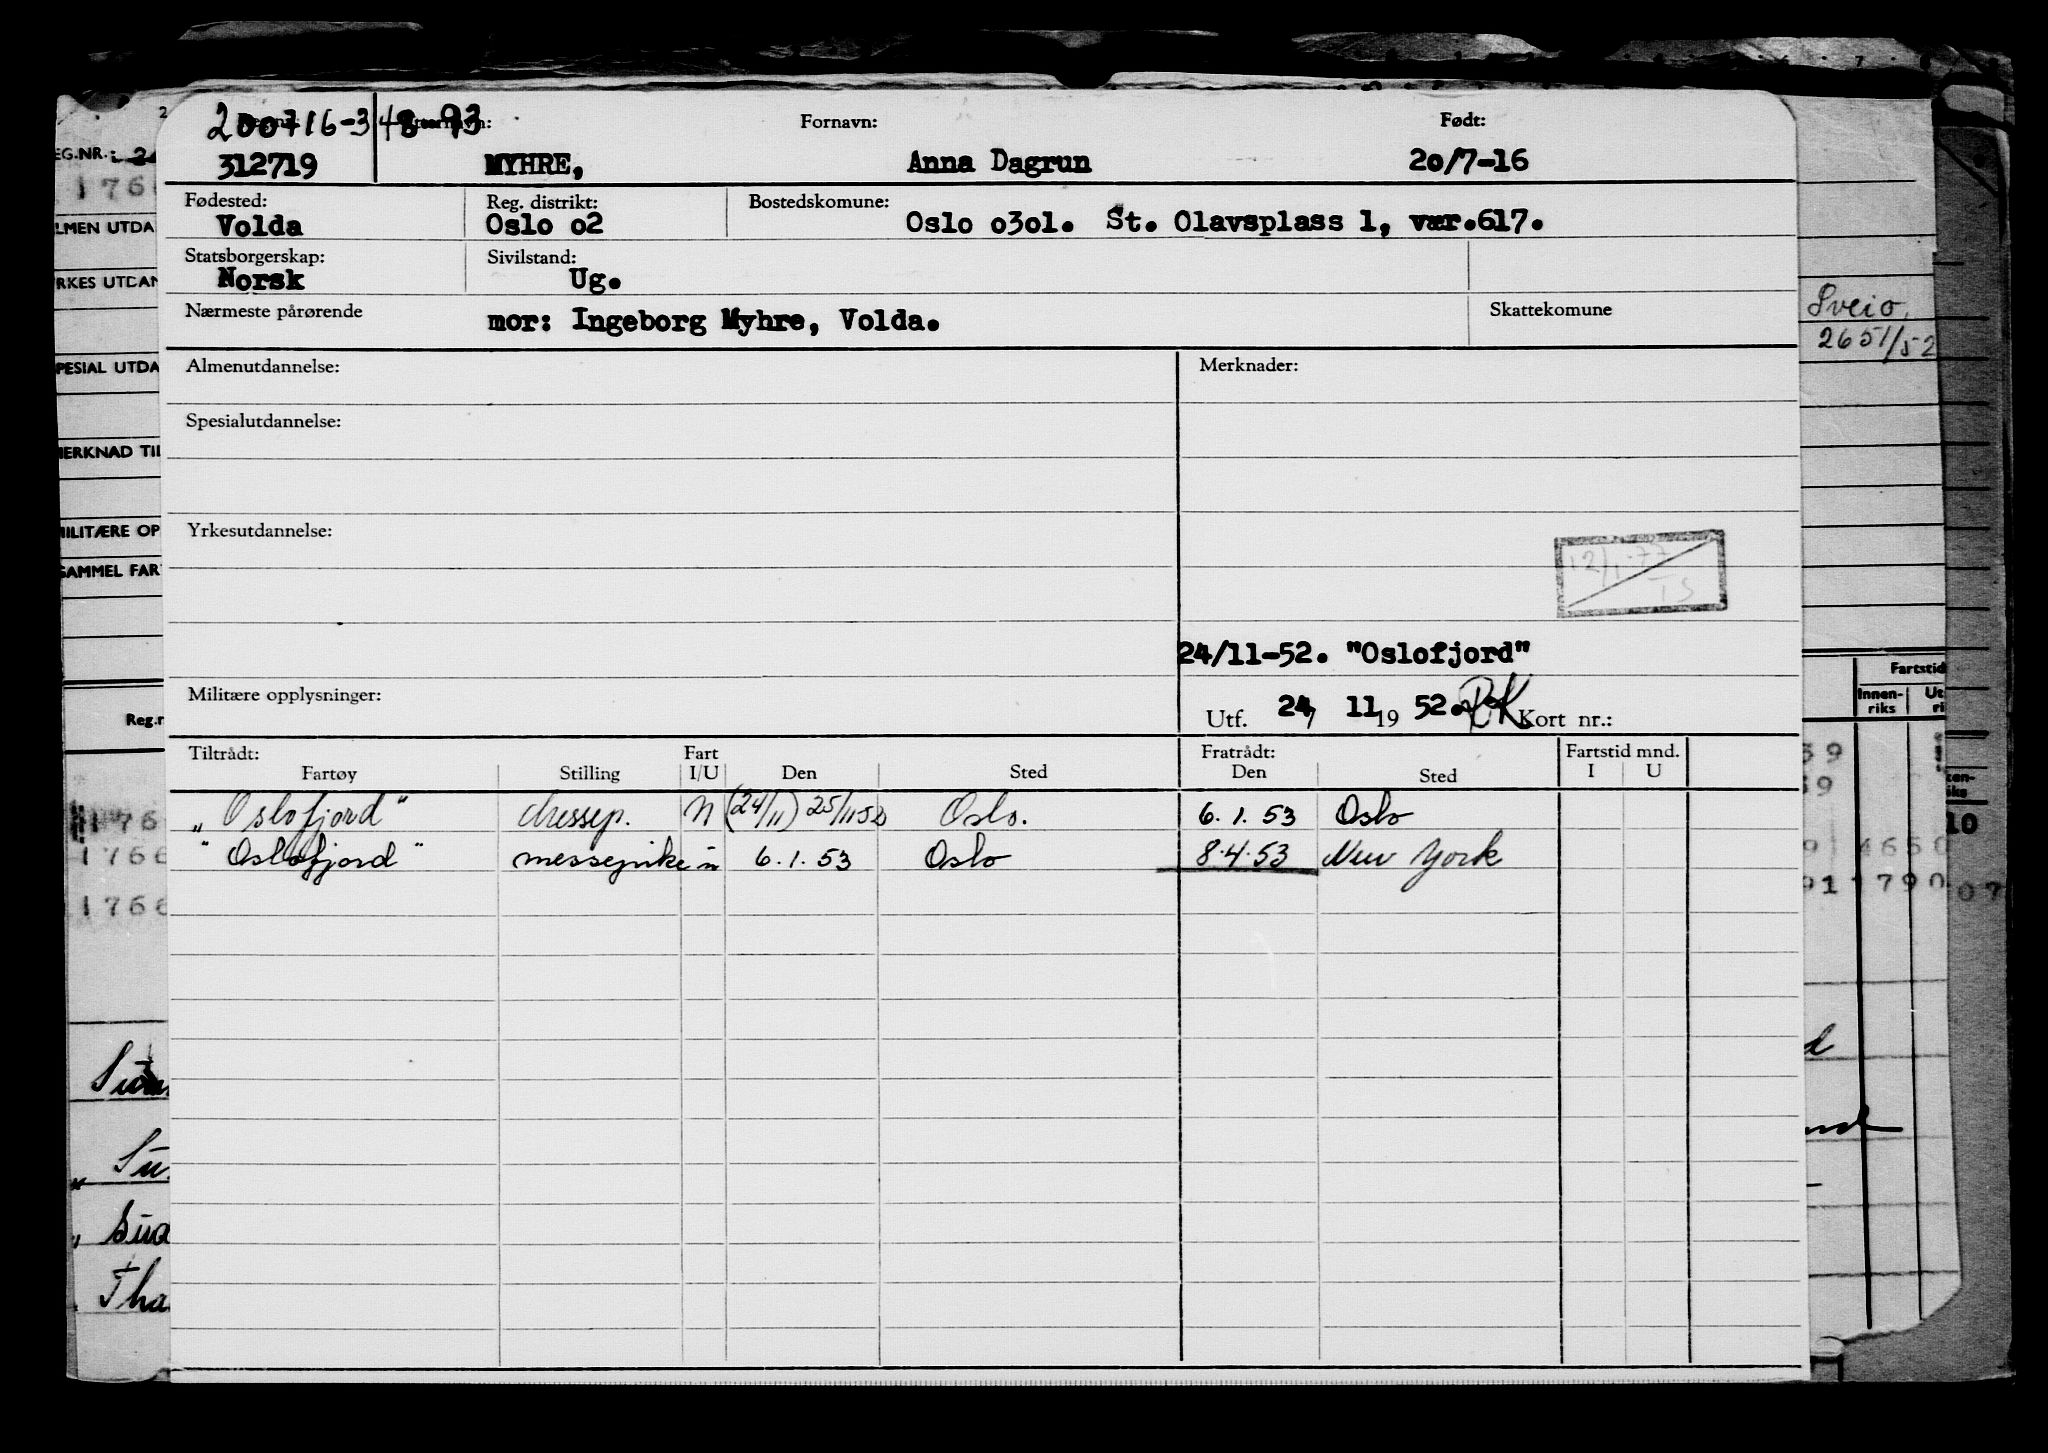 200716-34893
Fornavn: Født:
312719 MYHRE, Anna Dagrun 20/7-16
Fødested: Reg. distrikt: Bostedskomune:
Volda Oslo o2 Oslo o3o1. St. Olavsplass 1, vær.617.
Statsborgerskap: Sivilstand:
Norsk Ug.
Nærmeste pårørende Skattekomune
mor: Ingeborg Myhre, Volda.
Almenutdannelse: Merknader:
Spesialutdannelse:
Yrkesutdannelse:
12/1.77
TS
24/11-52. "Oslofjord"
Militære opplysninger:
Utf. 24/ 11 19 52. RK Kort nr.:
Tiltrådt: Fart Fratrådt: Fartstid mnd.
Fartøy Stilling I/U Den Sted Den Sted I U
"Oslofjord" messep. N (24/11) 25/11 52 Oslo. 6.1.53 Oslo
"Oslofjord" messepike n 6.1.53 Oslo 8.4.53 New York
EG.NR.:
1766
LMEN UTDA
RKES UTDAN
PESIAL UTDA
MERKNAD TIL
MILITÆRE OP
GAMMEL FAR
Reg.n
1766
1766
1766
Su
Tha
Sveio,
2651/52
Fartstid
Innen-
riks
Ut
ri
10